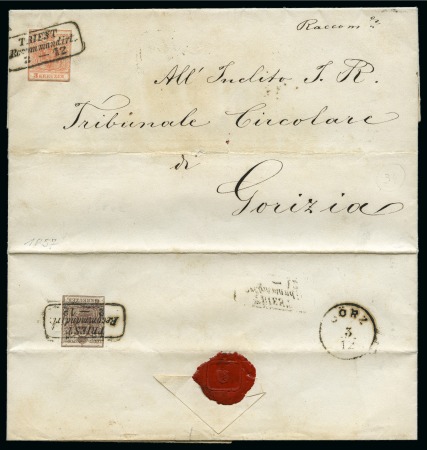 TRIEST
Recommandirt.
3 – 12
KREUZER
Raccom.
All' Inclito I. R.
Tribunale Circolare
di
Gorizia
1855
TRIEST
Recommandirt.
TRIEST
GÖRZ
3
12